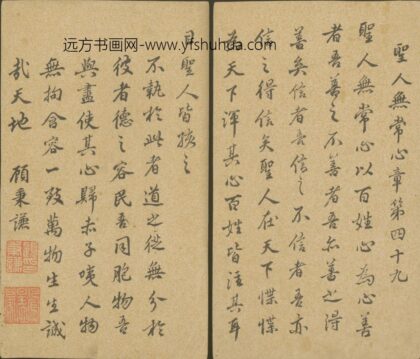 远方书画网-www.yfshuhua.com
聖人無常心章第四十九
聖人無常心以百姓心為心善
者吾善之不善者吾亦善之得
善矣信者吾信之不信者吾亦
信之得信矣聖人在天下惵惵
為天下渾其心百姓皆注其耳
目聖人皆孩之
不執於此者道之從無分於
彼者德之容民吾同胞物吾
與盡使其心歸赤子人物
無拘含容一致萬物生生誠
哉天地 顧秉謙